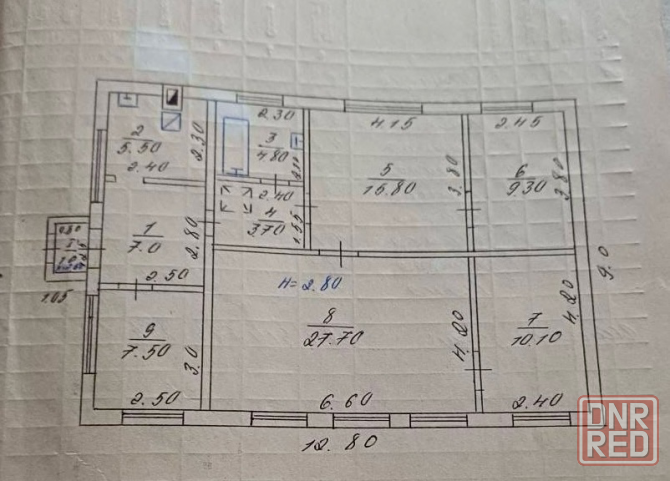 2
5.50
2.40
2.30
2.30
3
4.80
4.15
5
15.80
3.80
2.45
6
9.30
3.80
1
7.0
2.80
2.50
2.40
4
3.70
1.55
0.80
1.05
H=2.80
8
27.70
4.20
6.60
7
10.10
4.20
2.40
9
7.50
3.0
2.50
12.80
9.0
DNR
RED